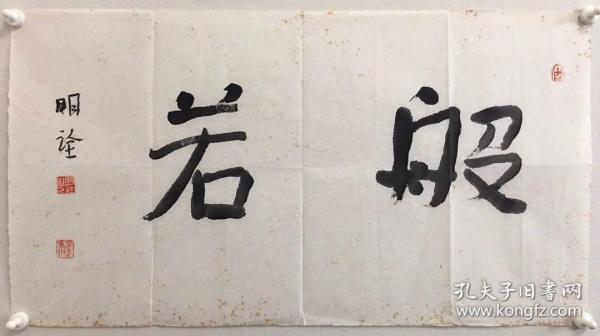 般若
明詮
孔夫子旧书网
www.kongfz.com